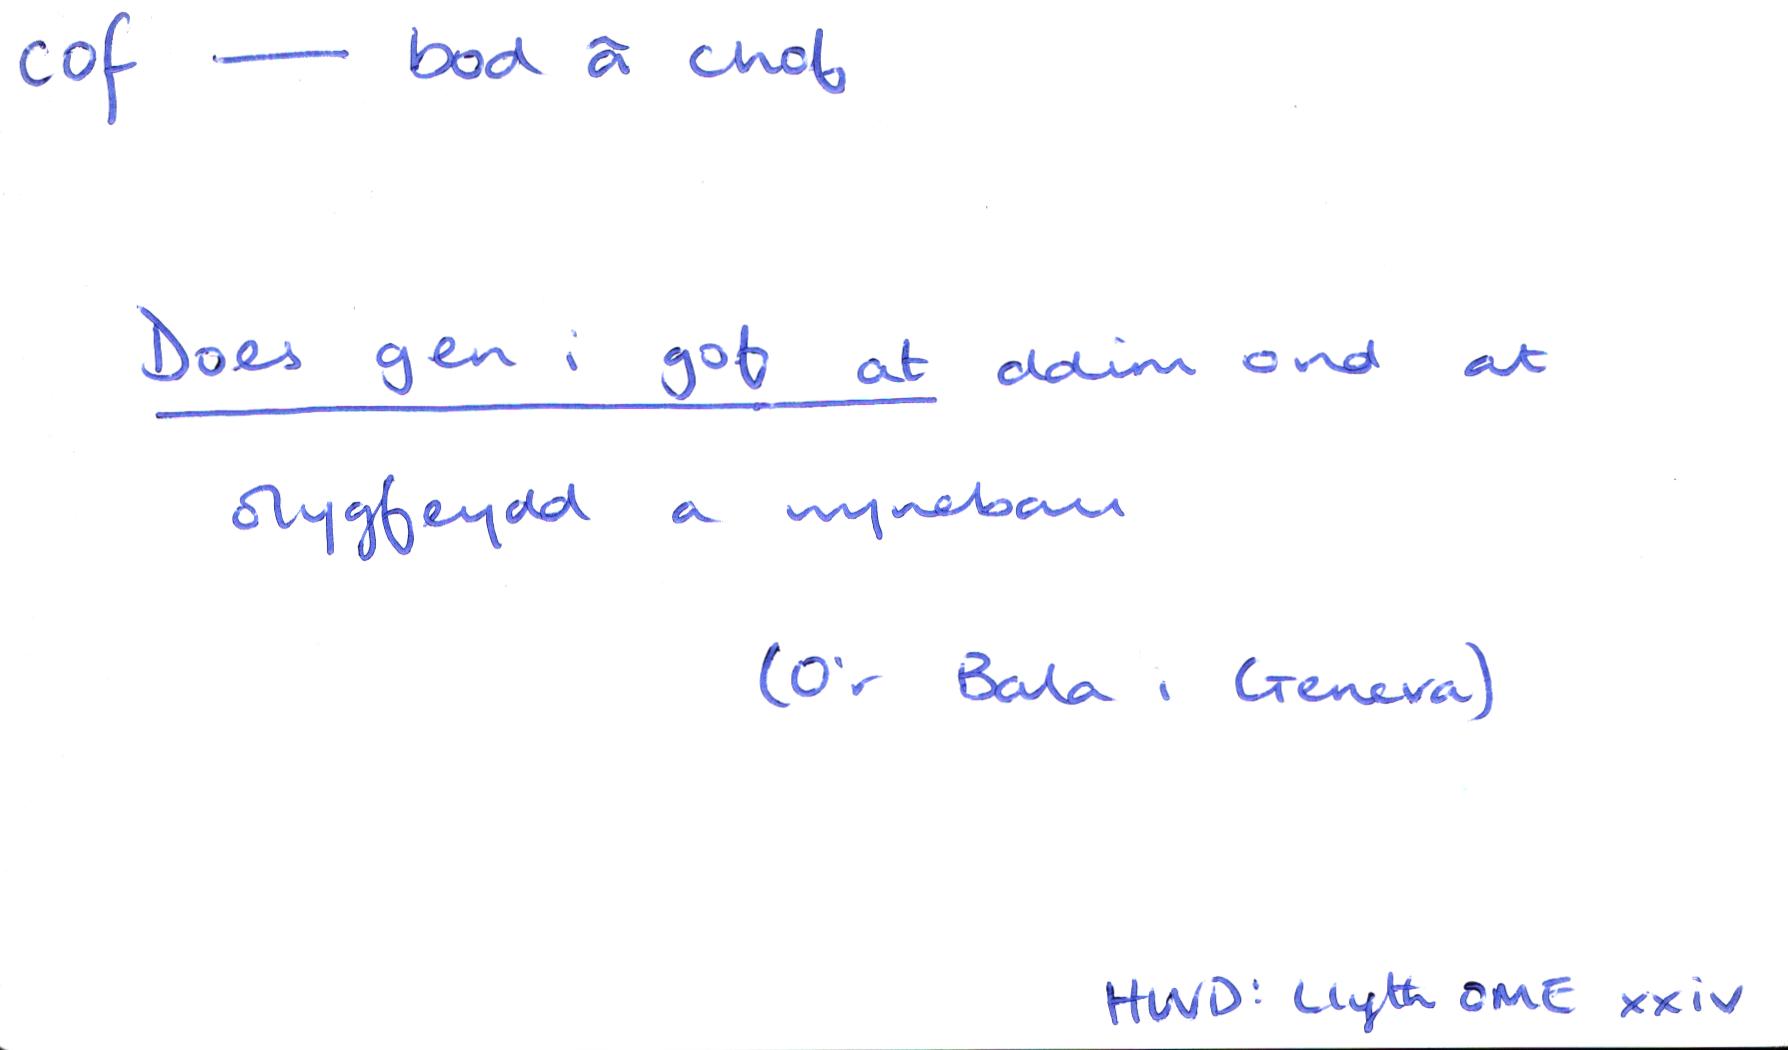 cof — bod â chof
Does gen i gof at ddim ond at
olygfeydd a wynebau
(O'r Bala i Geneva)
HWD: Llyth OME xxiv